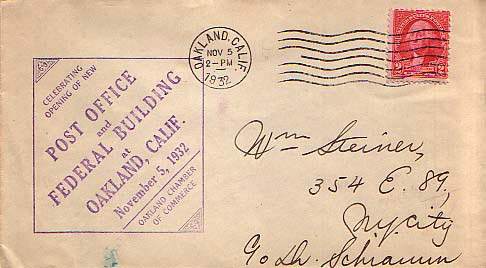 CELEBRATING
OPENING OF NEW
POST OFFICE
and
FEDERAL BUILDING
at
OAKLAND, CALIF.
November 5, 1932
OAKLAND CHAMBER
OF COMMERCE
OAKLAND, CALIF.
NOV 5
2-PM
1932
Wm Steiner,
354 E. 89,
N.Y. City
c/o Dr. Schramm